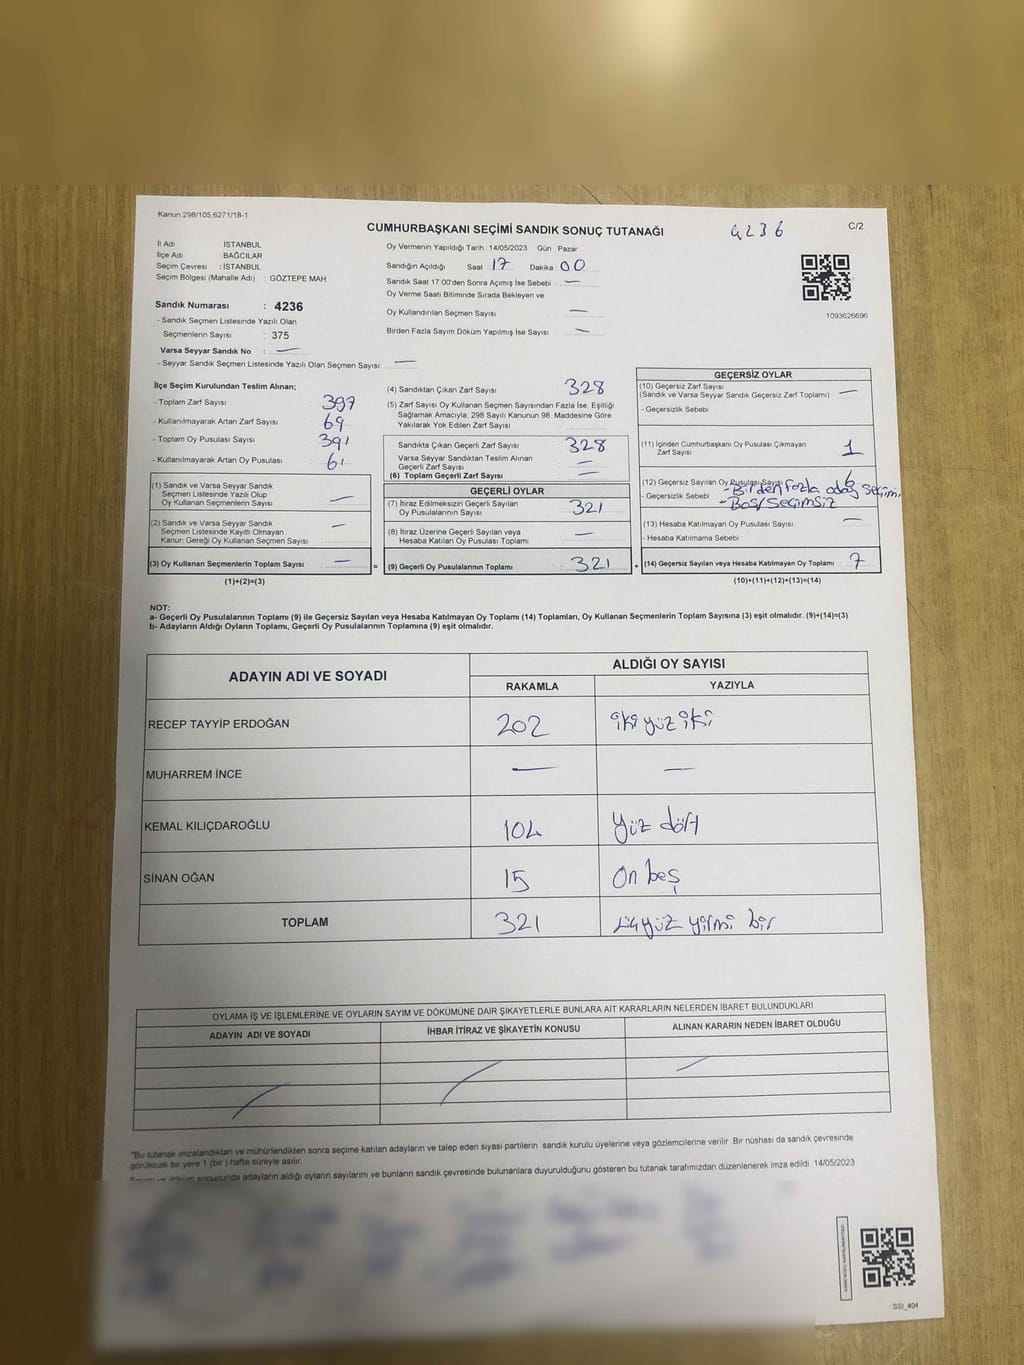 Kanun 298/105 6271/18-1
CUMHURBAŞKANI SEÇİMİ SANDIK SONUÇ TUTANAĞI
4236
C/2
İl Adı : İSTANBUL
İlçe Adı : BAĞCILAR
Seçim Çevresi : İSTANBUL
Seçim Bölgesi (Mahalle Adı) : GÖZTEPE MAH
Sandık Numarası : 4236
- Sandık Seçmen Listesinde Yazılı Olan
Seçmenlerin Sayısı : 375
Varsa Seyyar Sandık No : —
- Seyyar Sandık Seçmen Listesinde Yazılı Olan Seçmen Sayısı: —
Oy Vermenin Yapıldığı Tarih :14/05/2023 Gün : Pazar
Sandığın Açıldığı Saat : 17 Dakika : 00
Sandık Saat 17:00'den Sonra Açımış İse Sebebi : —
Oy Verme Saati Bitiminde Sırada Bekleyen ve
Oy Kullandırılan Seçmen Sayısı : —
Birden Fazla Sayım Döküm Yapılmış İse Sayısı : —
1093626696
İlçe Seçim Kurulundan Teslim Alınan;
- Toplam Zarf Sayısı : 397
- Kullanılmayarak Artan Zarf Sayısı : 69
- Toplam Oy Pusulası Sayısı : 391
- Kullanılmayarak Artan Oy Pusulası : 61
(1) Sandık ve Varsa Seyyar Sandık
Seçmen Listesinde Yazılı Olup
Oy Kullanan Seçmenlerin Sayısı —
(2) Sandık ve Varsa Seyyar Sandık
Seçmen Listesinde Kayıtlı Olmayan
Kanun Gereği Oy Kullanan Seçmen Sayısı —
(3) Oy Kullanan Seçmenlerin Toplam Sayısı — =
(1)+(2)=(3)
(4) Sandıktan Çıkan Zarf Sayısı : 328
(5) Zarf Sayısı Oy Kullanan Seçmen Sayısından Fazla İse, Eşitliği
Sağlamak Amacıyla, 298 Sayılı Kanunun 98. Maddesine Göre
Yakılarak Yok Edilen Zarf Sayısı :
Sandıkta Çıkan Geçerli Zarf Sayısı : 328
Varsa Seyyar Sandıktan Teslim Alınan
Geçerli Zarf Sayısı : —
(6) Toplam Geçerli Zarf Sayısı : —
GEÇERLİ OYLAR
(7) İtiraz Edilmeksizin Geçerli Sayılan
Oy Pusulalarının Sayısı : 321
(8) İtiraz Üzerine Geçerli Sayılan veya
Hesaba Katılan Oy Pusulası Toplamı : —
(9) Geçerli Oy Pusulalarının Toplamı : 321 +
GEÇERSİZ OYLAR
(10) Geçersiz Zarf Sayısı
(Sandık ve Varsa Seyyar Sandık Geçersiz Zarf Toplamı) : —
- Geçersizlik Sebebi :
(11) İçinden Cumhurbaşkanı Oy Pusulası Çıkmayan
Zarf Sayısı : 1
(12) Geçersiz Sayılan Oy Pusulası Sayısı : 6
- Geçersizlik Sebebi : - Birden fazla aday seçimi
- Boş/seçimsiz
(13) Hesaba Katılmayan Oy Pusulası Sayısı : —
- Hesaba Katılmama Sebebi :
(14) Geçersiz Sayılan veya Hesaba Katılmayan Oy Toplamı : 7
(10)+(11)+(12)+(13)=(14)
NOT:
a- Geçerli Oy Pusulalarının Toplamı (9) ile Geçersiz Sayılan veya Hesaba Katılmayan Oy Toplamı (14) Toplamları, Oy Kullanan Seçmenlerin Toplam Sayısına (3) eşit olmalıdır. (9)+(14)=(3)
b- Adayların Aldığı Oyların Toplamı, Geçerli Oy Pusulalarının Toplamına (9) eşit olmalıdır.
ADAYIN ADI VE SOYADI
ALDIĞI OY SAYISI
RAKAMLA YAZIYLA
RECEP TAYYİP ERDOĞAN 202 iki yüz iki
MUHARREM İNCE — —
KEMAL KILIÇDAROĞLU 104 yüz dört
SİNAN OĞAN 15 On beş
TOPLAM 321 üçyüz yirmi bir
OYLAMA İŞ VE İŞLEMLERİNE VE OYLARIN SAYIM VE DÖKÜMÜNE DAİR ŞİKAYETLERLE BUNLARA AİT KARARLARIN NELERDEN İBARET BULUNDUKLARI
ADAYIN ADI VE SOYADI İHBAR İTİRAZ VE ŞİKAYETİN KONUSU ALINAN KARARIN NEDEN İBARET OLDUĞU
*Bu tutanak imzalandıktan ve mühürlendikten sonra seçime katılan adayların ve talep eden siyasi partilerin sandık kurulu üyelerine veya gözlemcilerine verilir. Bir nüshası da sandık çevresinde
görülecek bir yere 1 (bir) hafta süreyle asılır.
Sayım ve döküm sonucunda adayların aldığı oyların sayılarını ve bunların sandık çevresinde bulunanlara duyurulduğunu gösteren bu tutanak tarafımızdan düzenlenerek imza edildi. 14/05/2023
SSI_404